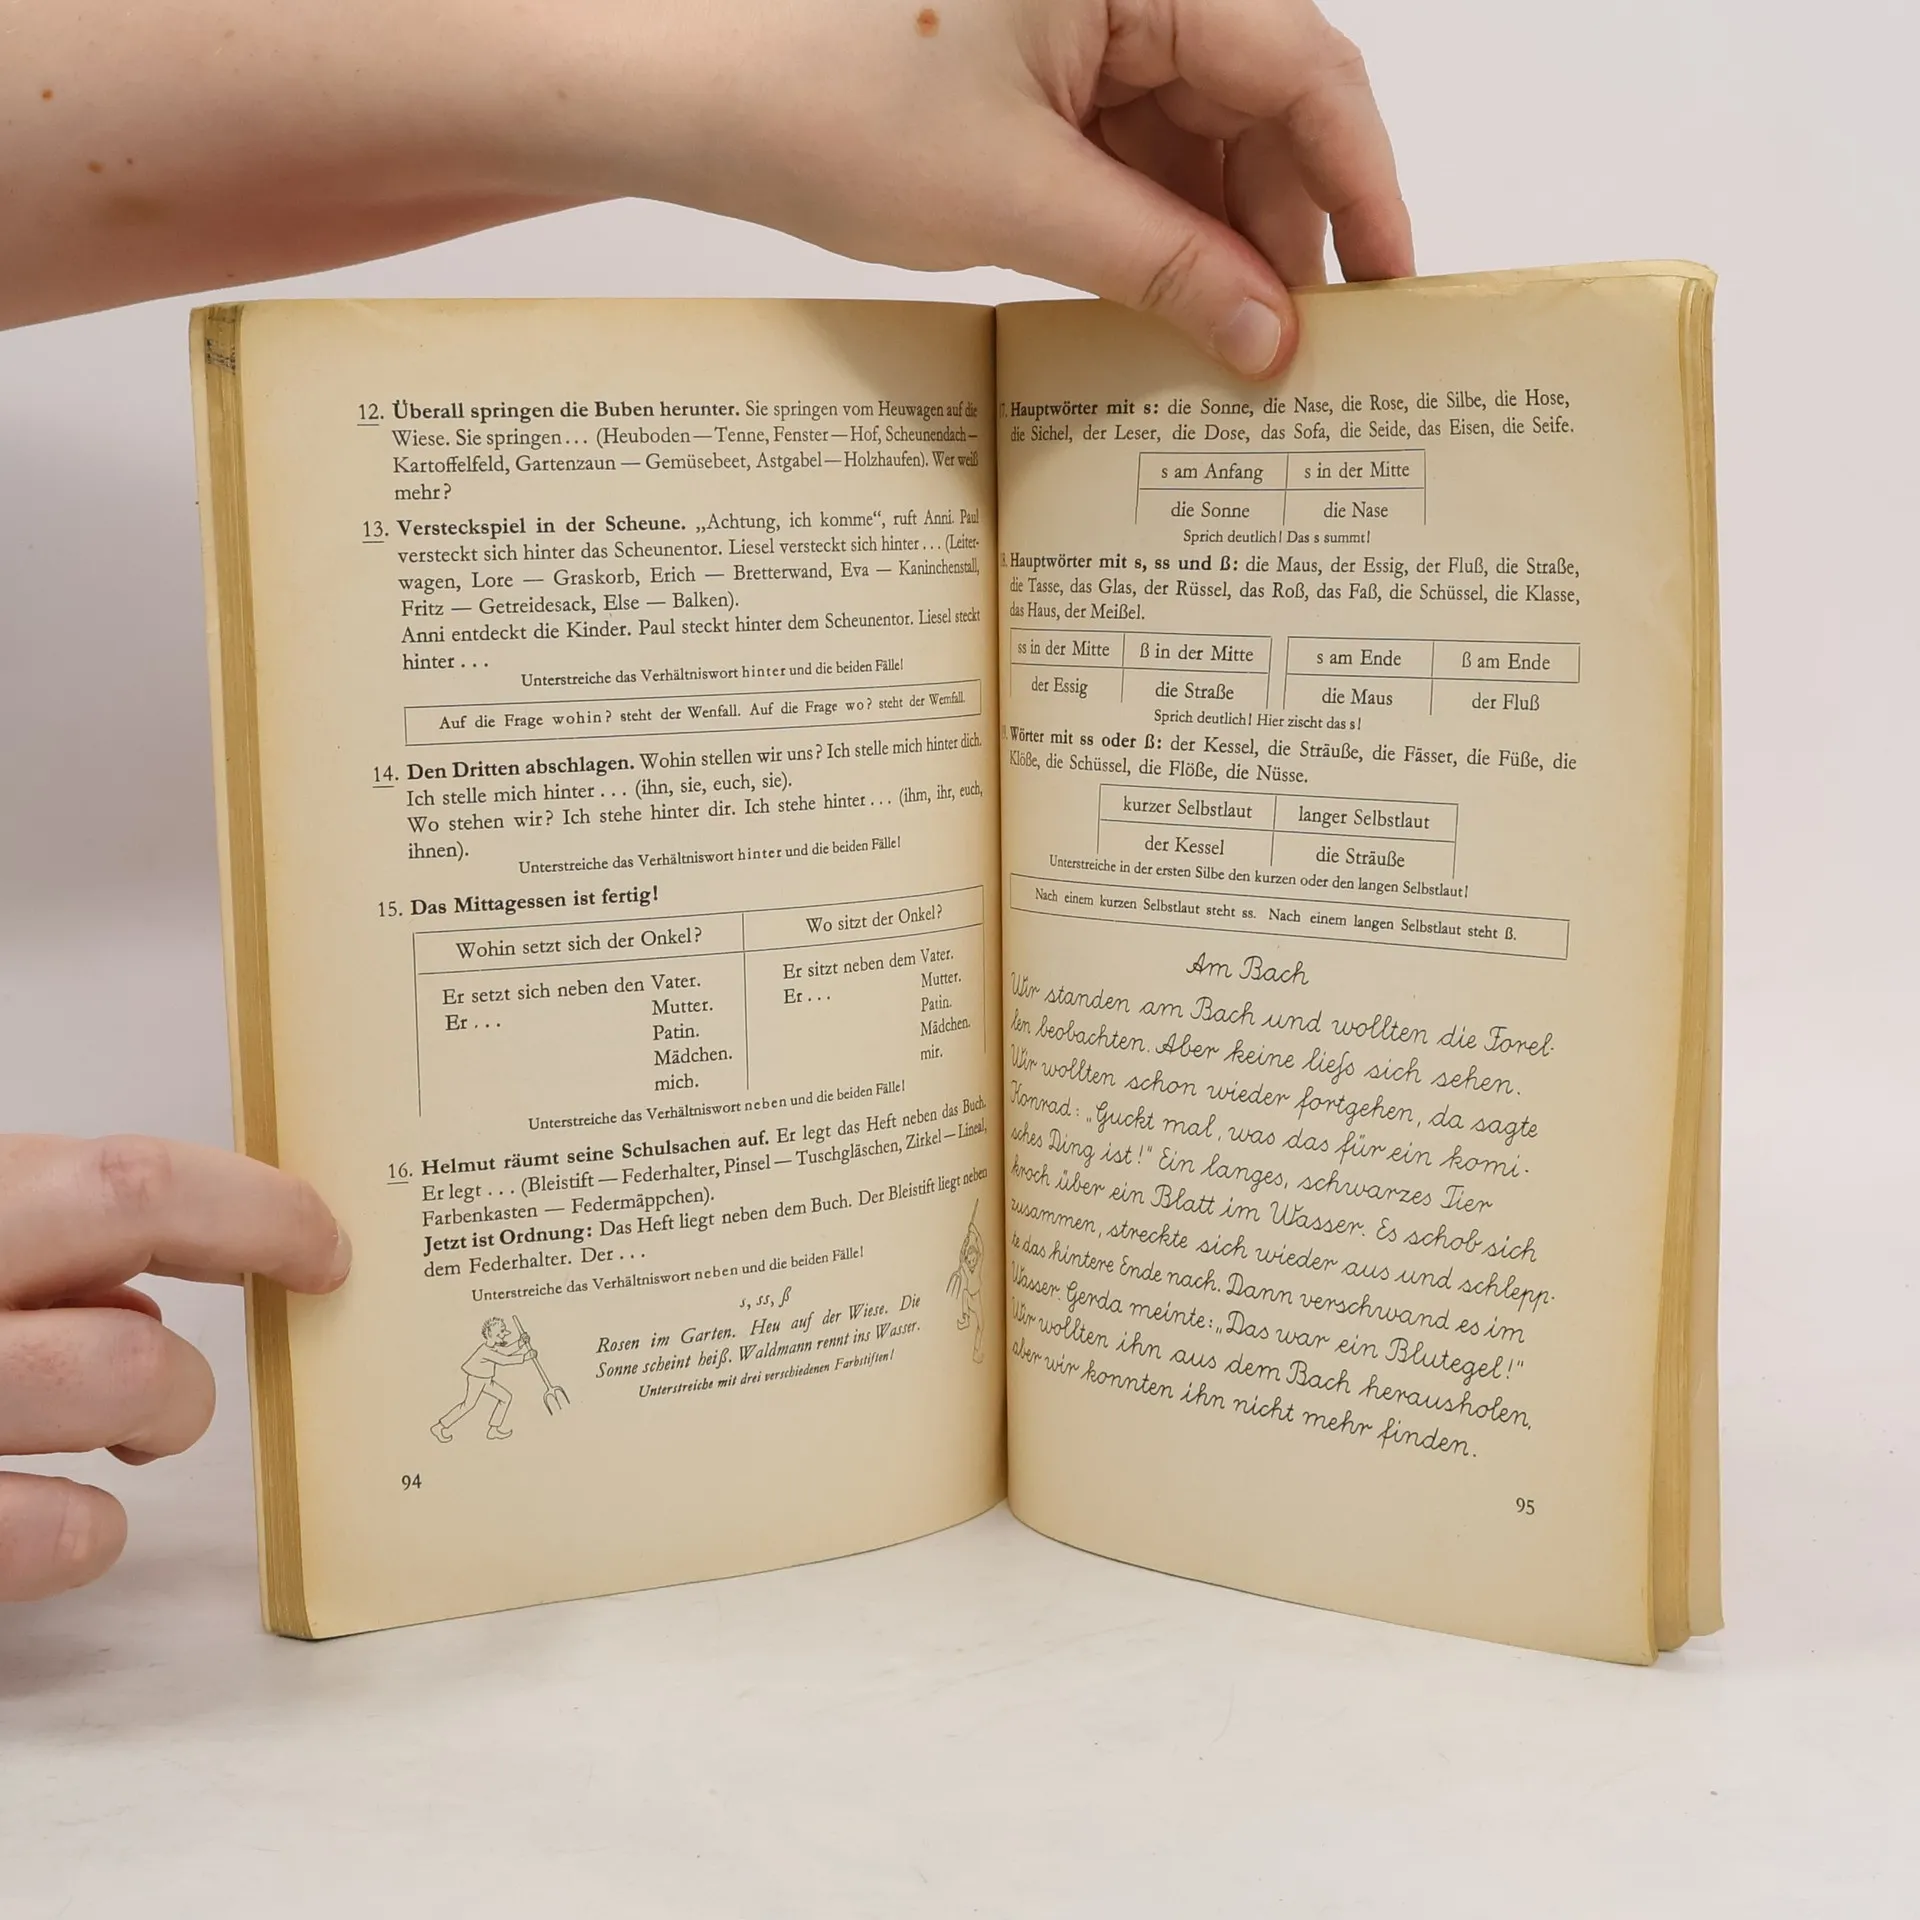 12. Überall springen die Buben herunter. Sie springen vom Heuwagen auf die
Wiese. Sie springen... (Heuboden—Tenne, Fenster—Hof, Scheunendach—
Kartoffelfeld, Gartenzaun — Gemüsebeet, Astgabel—Holzhaufen). Wer weiß
mehr?
13. Versteckspiel in der Scheune. „Achtung, ich komme“, ruft Anni. Paul
versteckt sich hinter das Scheunentor. Liesel versteckt sich hinter... (Leiter-
wagen, Lore — Graskorb, Erich — Bretterwand, Eva — Kaninchenstall,
Fritz — Getreidesack, Else — Balken).
Anni entdeckt die Kinder. Paul steckt hinter dem Scheunentor. Liesel steckt
hinter...
Unterstreiche das Verhältniswort hinter und die beiden Fälle!
Auf die Frage wohin? steht der Wenfall. Auf die Frage wo? steht der Wemfall.
14. Den Dritten abschlagen. Wohin stellen wir uns? Ich stelle mich hinter dich.
Ich stelle mich hinter... (ihn, sie, euch, sie).
Wo stehen wir? Ich stehe hinter dir. Ich stehe hinter... (ihm, ihr, euch,
ihnen).
Unterstreiche das Verhältniswort hinter und die beiden Fälle!
15. Das Mittagessen ist fertig!
Wohin setzt sich der Onkel? Wo sitzt der Onkel?
Er setzt sich neben den Vater. Er sitzt neben dem Vater.
Er... Mutter. Er... Mutter.
Patin. Patin.
Mädchen. Mädchen.
mich. mir.
Unterstreiche das Verhältniswort neben und die beiden Fälle!
16. Helmut räumt seine Schulsachen auf. Er legt das Heft neben das Buch.
Er legt... (Bleistift—Federhalter, Pinsel—Tuschgläschen, Zirkel—Lineal,
Farbenkasten — Federmäppchen).
Jetzt ist Ordnung: Das Heft liegt neben dem Buch. Der Bleistift liegt neben
dem Federhalter. Der...
Unterstreiche das Verhältniswort neben und die beiden Fälle!
s, ss, ß
Rosen im Garten. Heu auf der Wiese. Die
Sonne scheint heiß. Waldmann rennt ins Wasser.
Unterstreiche mit drei verschiedenen Farbstiften!
94
7. Hauptwörter mit s: die Sonne, die Nase, die Rose, die Silbe, die Hose,
die Sichel, der Leser, die Dose, das Sofa, die Seide, das Eisen, die Seife.
s am Anfang s in der Mitte
die Sonne die Nase
Sprich deutlich! Das s summt!
8. Hauptwörter mit s, ss und ß: die Maus, der Essig, der Fluß, die Straße,
die Tasse, das Glas, der Rüssel, das Roß, das Faß, die Schüssel, die Klasse,
das Haus, der Meißel.
ss in der Mitte ß in der Mitte s am Ende ß am Ende
der Essig die Straße die Maus der Fluß
Sprich deutlich! Hier zischt das s!
Wörter mit ss oder ß: der Kessel, die Sträuße, die Fässer, die Füße, die
Klöße, die Schüssel, die Flöße, die Nüsse.
kurzer Selbstlaut langer Selbstlaut
der Kessel die Sträuße
Unterstreiche in der ersten Silbe den kurzen oder den langen Selbstlaut!
Nach einem kurzen Selbstlaut steht ss. Nach einem langen Selbstlaut steht ß.
Am Bach
Wir standen am Bach und wollten die Forel-
len beobachten. Aber keine ließ sich sehen.
Wir wollten schon wieder fortgehen, da sagte
Konrad: „Guckt mal, was das für ein komi-
sches Ding ist!“ Ein langes, schwarzes Tier
kroch über ein Blatt im Wasser. Es schob sich
zusammen, streckte sich wieder aus und schlepp-
te das hintere Ende nach. Dann verschwand es im
Wasser. Gerda meinte: „Das war ein Blutegel!“
Wir wollten ihn aus dem Bach herausholen,
aber wir konnten ihn nicht mehr finden.
95